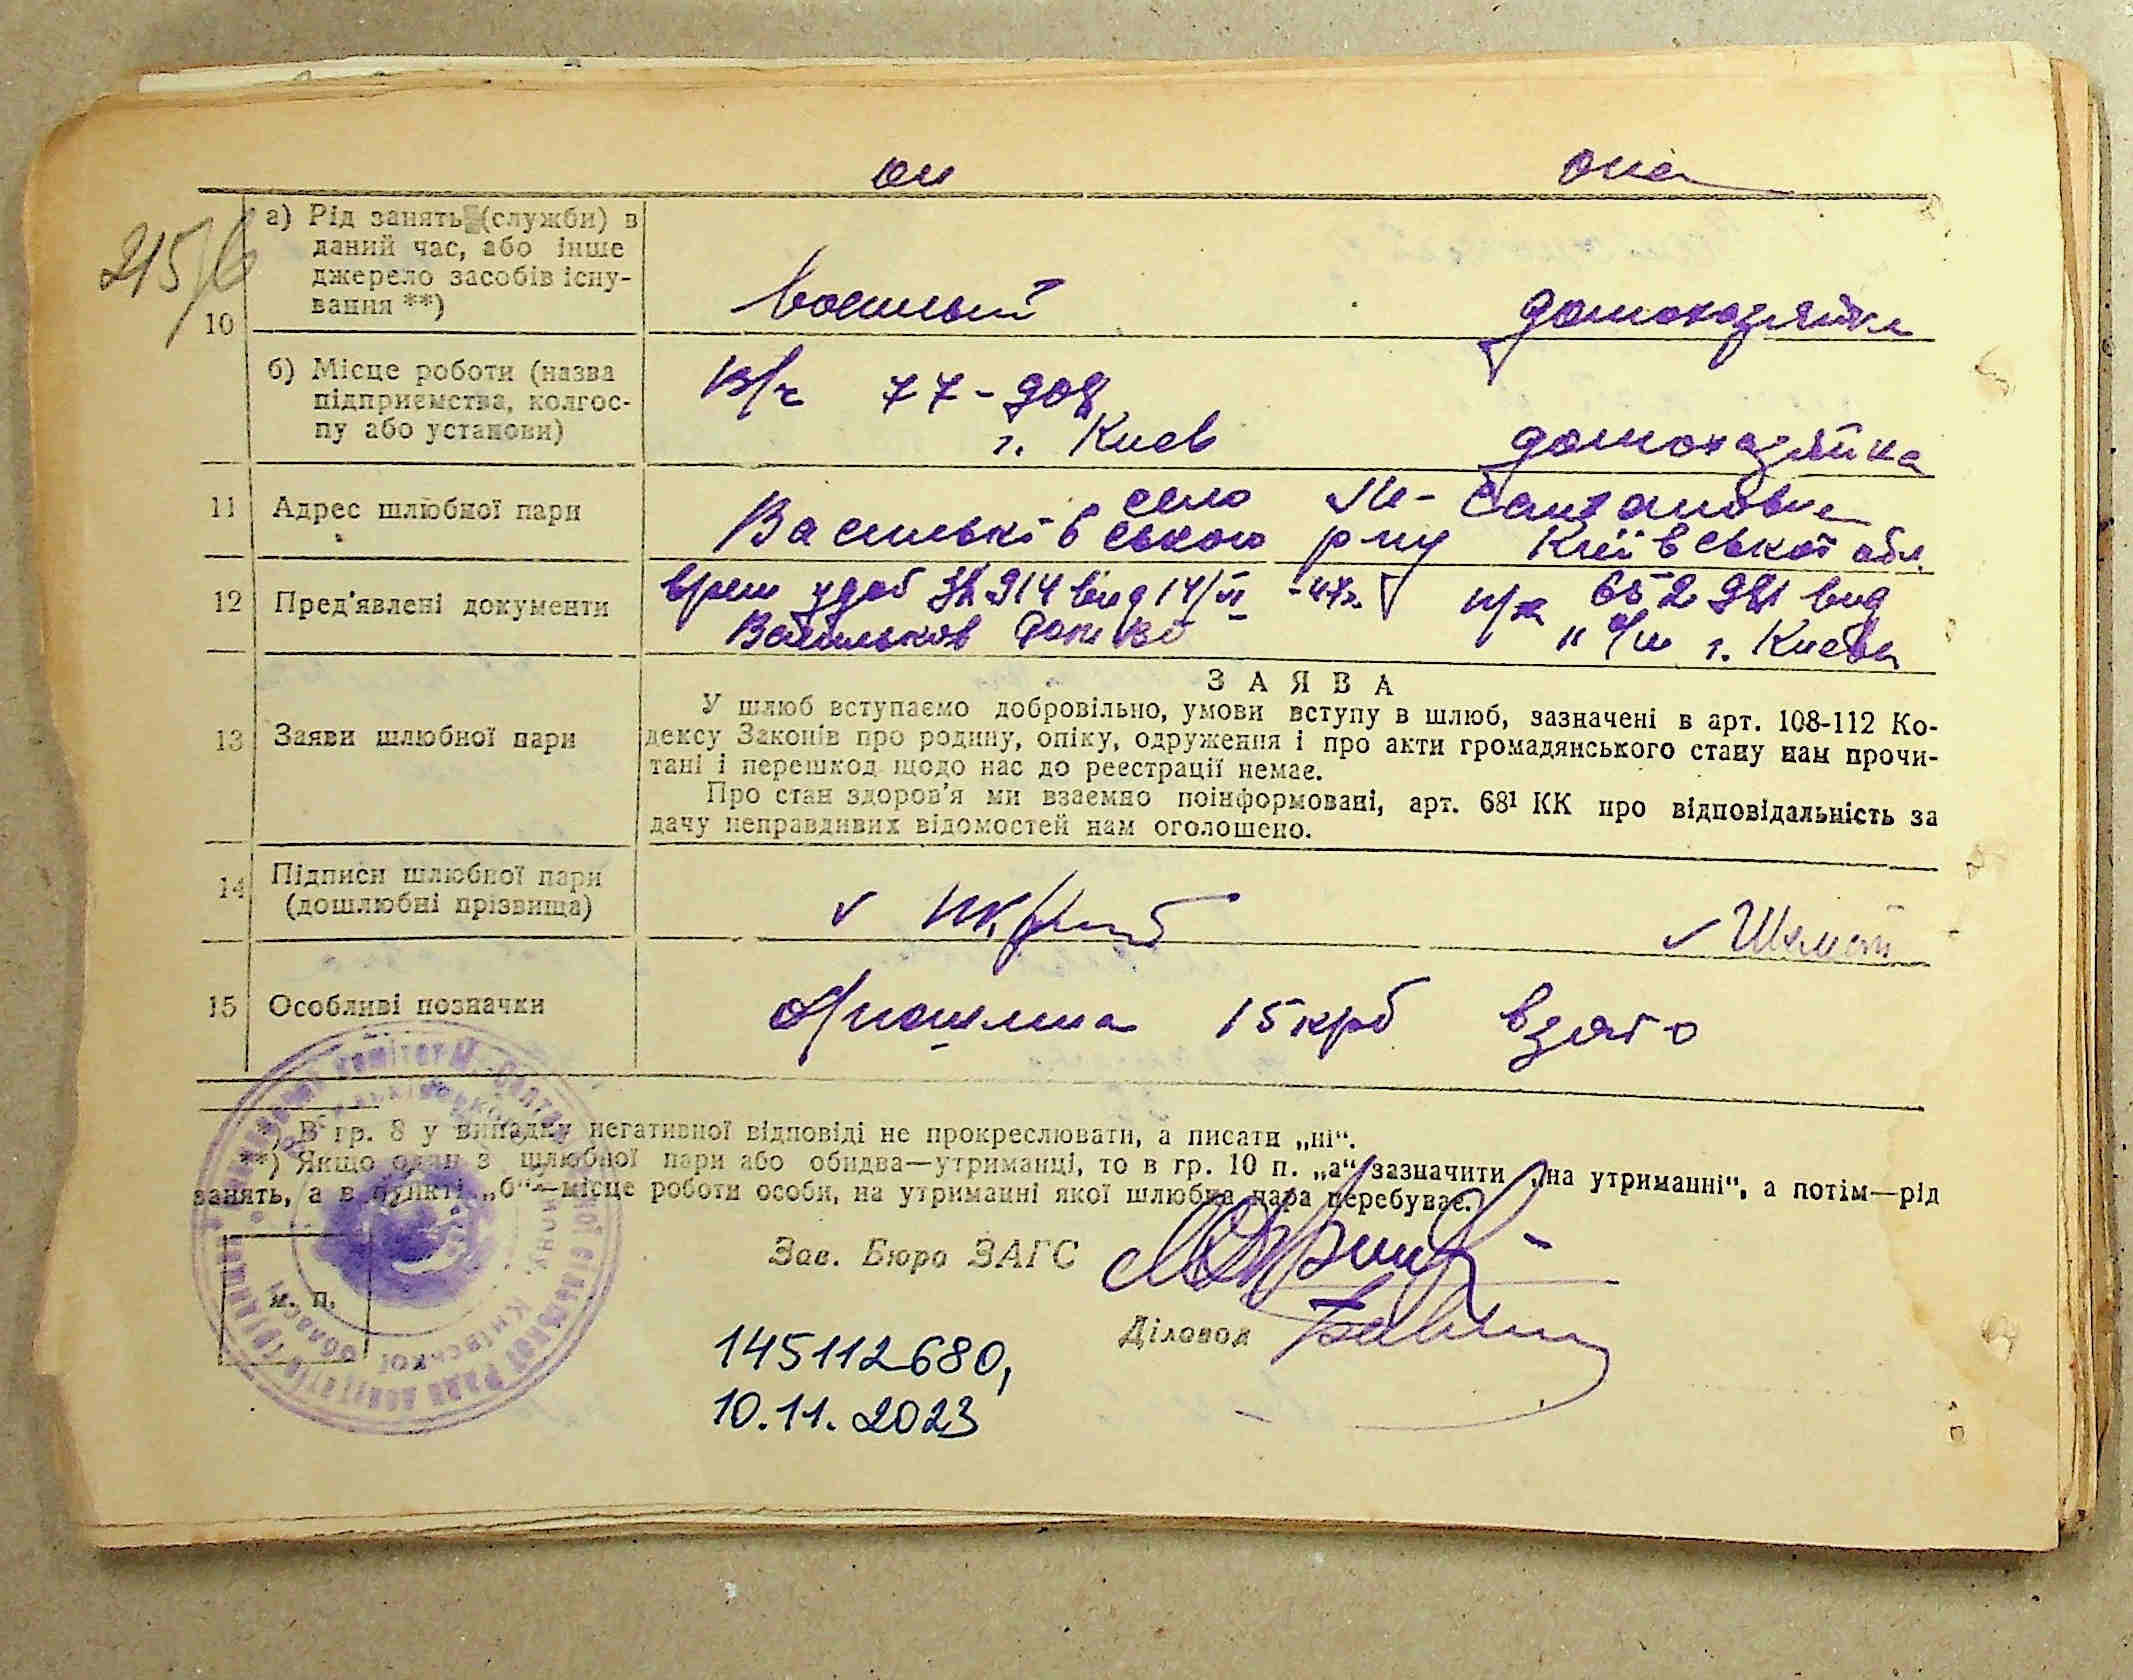 он она
215/б
а) Рід занять (служби) в
даний час, або інше
джерело засобів існу-
вання **)
10
военный домохазяйка
б) Місце роботи (назва
підприємства, колгос-
пу або установи)
в/ч 77-908
г. Киев домохазяйка
11 Адрес шлюбної пари
село М-Салтановка
Васильківського р-ну Київської обл.
12 Пред'явлені документи
врем удоб № 914 від 14/VI -47г. п/к 652981 від
Васильков 11 о/м г. Киева
13 Заяви шлюбної пари
ЗАЯВА
У шлюб вступаємо добровільно, умови вступу в шлюб, зазначені в арт. 108-112 Ко-
дексу Законів про родину, опіку, одруження і про акти громадянського стану нам прочи-
тані і перешкод щодо нас до реєстрації немає.
Про стан здоров'я ми взаємно поінформовані, арт. 68¹ КК про відповідальність за
дачу неправдивих відомостей нам оголошено.
14 Підписи шлюбної пари
(дошлюбні прізвища)
15 Особливі позначки
пошлина 15 крб взято
*) В гр. 8 у випадку негативної відповіді не прокреслювати, а писати „ні“.
**) Якщо один з шлюбної пари або обидва—утриманці, то в гр. 10 п. „а“ зазначити „на утриманні“, а потім—рід
занять, а в пункті „б“—місце роботи особи, на утриманні якої шлюбна пара перебуває.
Зав. Бюро ЗАГС
Діловод
м. п.
145112680,
10.11.2023